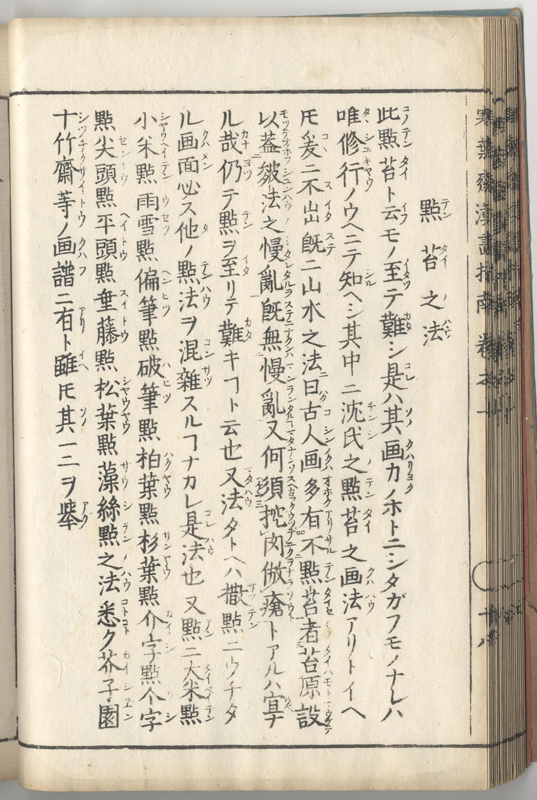 點苔之法
此點苔ト云モノ至テ難シ是ハ其画力ノホトニシタガフモノナレハ
唯修行ノウヘニテ知ヘシ其中ニ沈氏之點苔之画法アリトイヘ
𪜈爰ニ不出既ニ山水之法曰古人画多有不點苔者苔原設
以葢皴法之慢亂既無慢亂又何須挖肉做瘡トアルハ宜ナ
ル哉仍テ點ヲ至リテ難キヿト云也又法タトヘハ撒點ニウチタ
ル画面必ス他ノ點法ヲ混雜スルヿナカレ是法也又點ニ大米點
小米點雨雪點偏筆點破筆點柏葉點杉葉點介字點个字
點尖頭點平頭點垂藤點松葉點藻絲點之法悉ク芥子園
十竹齋等ノ画譜ニ有ト雖𪜈其一二ヲ擧